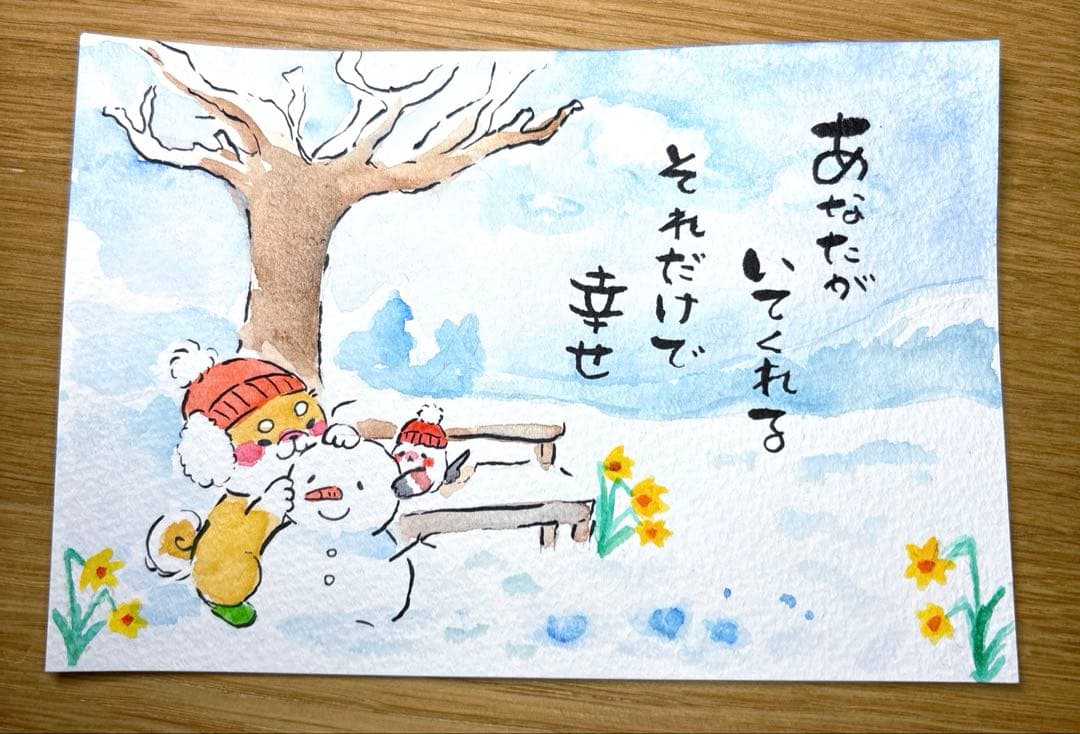 あなたが
いてくれる
それだけで
幸せ